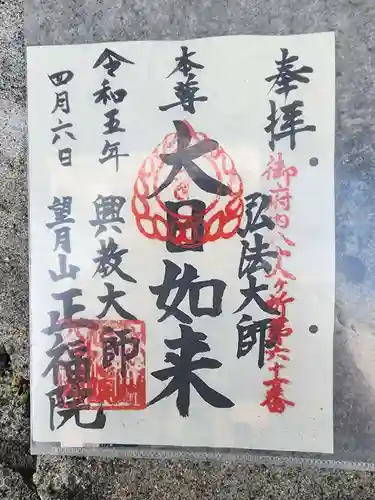 奉拝
御府内八十八ヶ所第六十一番
弘法大師
本尊
大日如来
興教大師
令和五年
四月六日
望月山 正福院